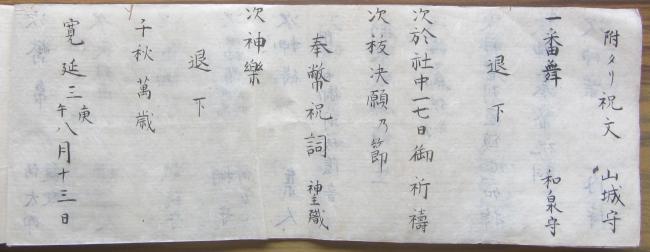 附タリ祝文　山城守
一番舞　和泉守
退下
次於社中一七日御祈禱
次枝決願乃節
奉幣祝詞　神主職
次神樂
退下
千秋萬歳
寛延三庚午八月十三日